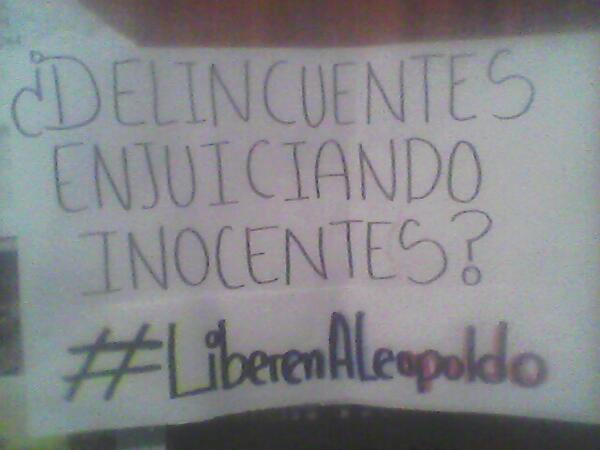 ¿DELINCUENTES
ENJUICIANDO
INOCENTES?
#LiberenALeopoldo